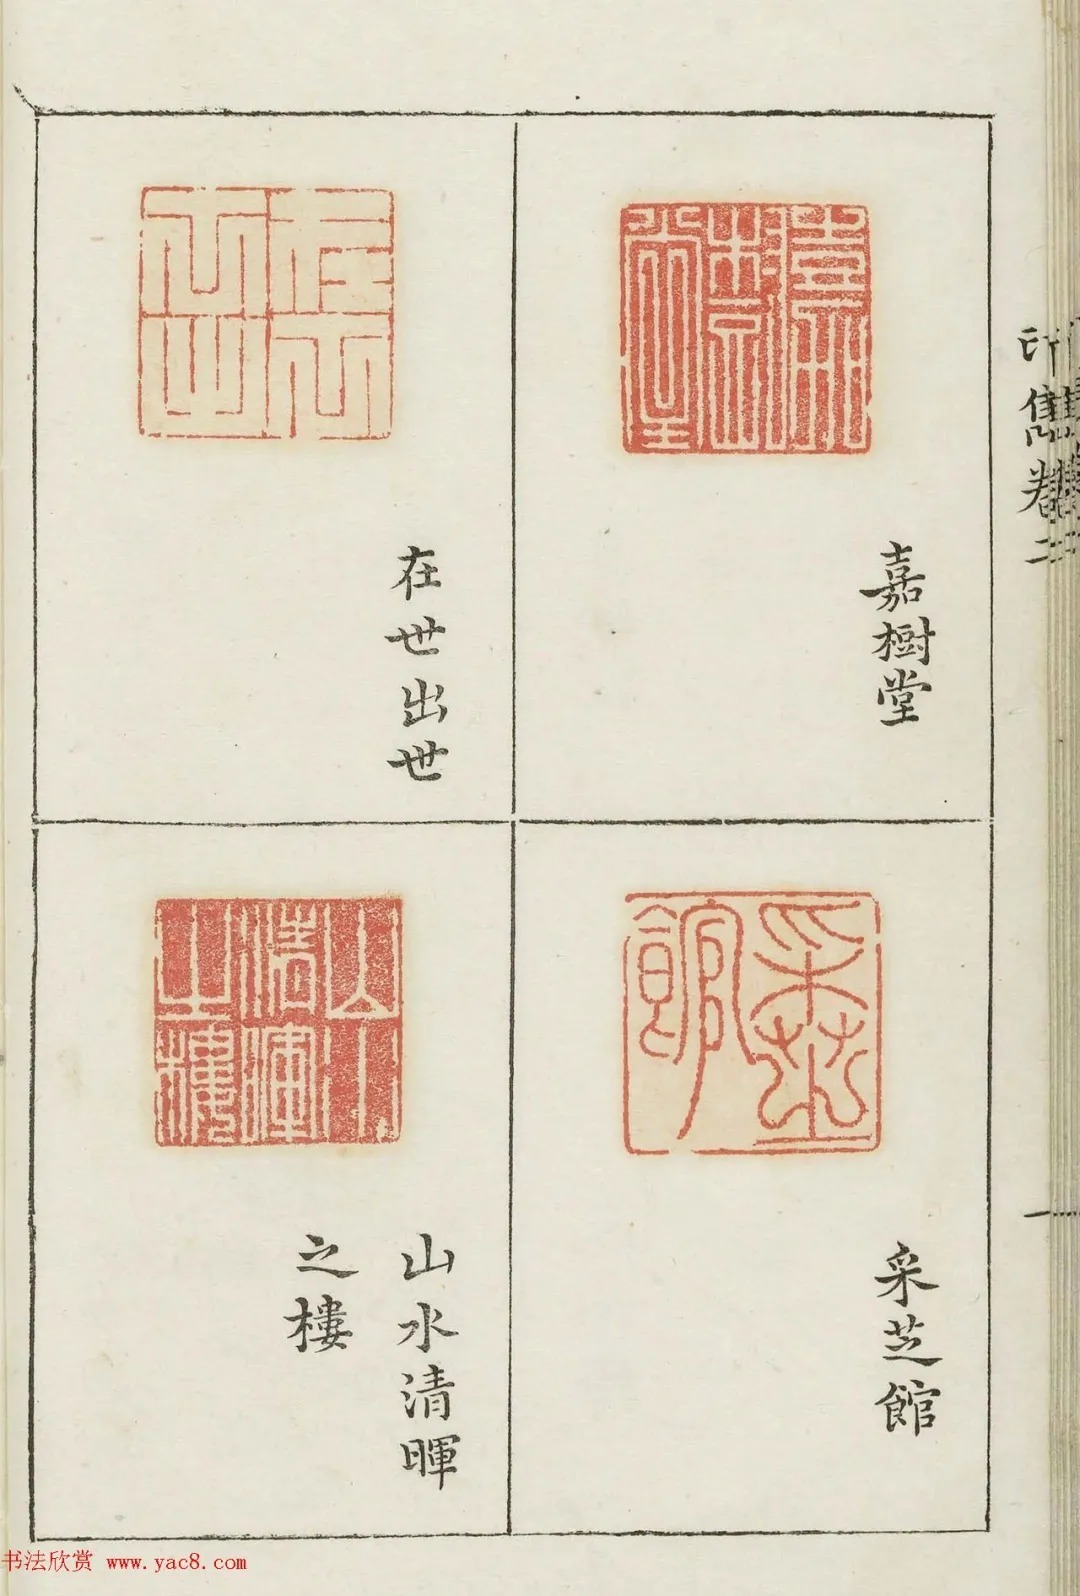 印雋卷二
嘉樹堂
在世出世
采芝館
山水清暉
之樓
一
书法欣赏 www.yac8.com